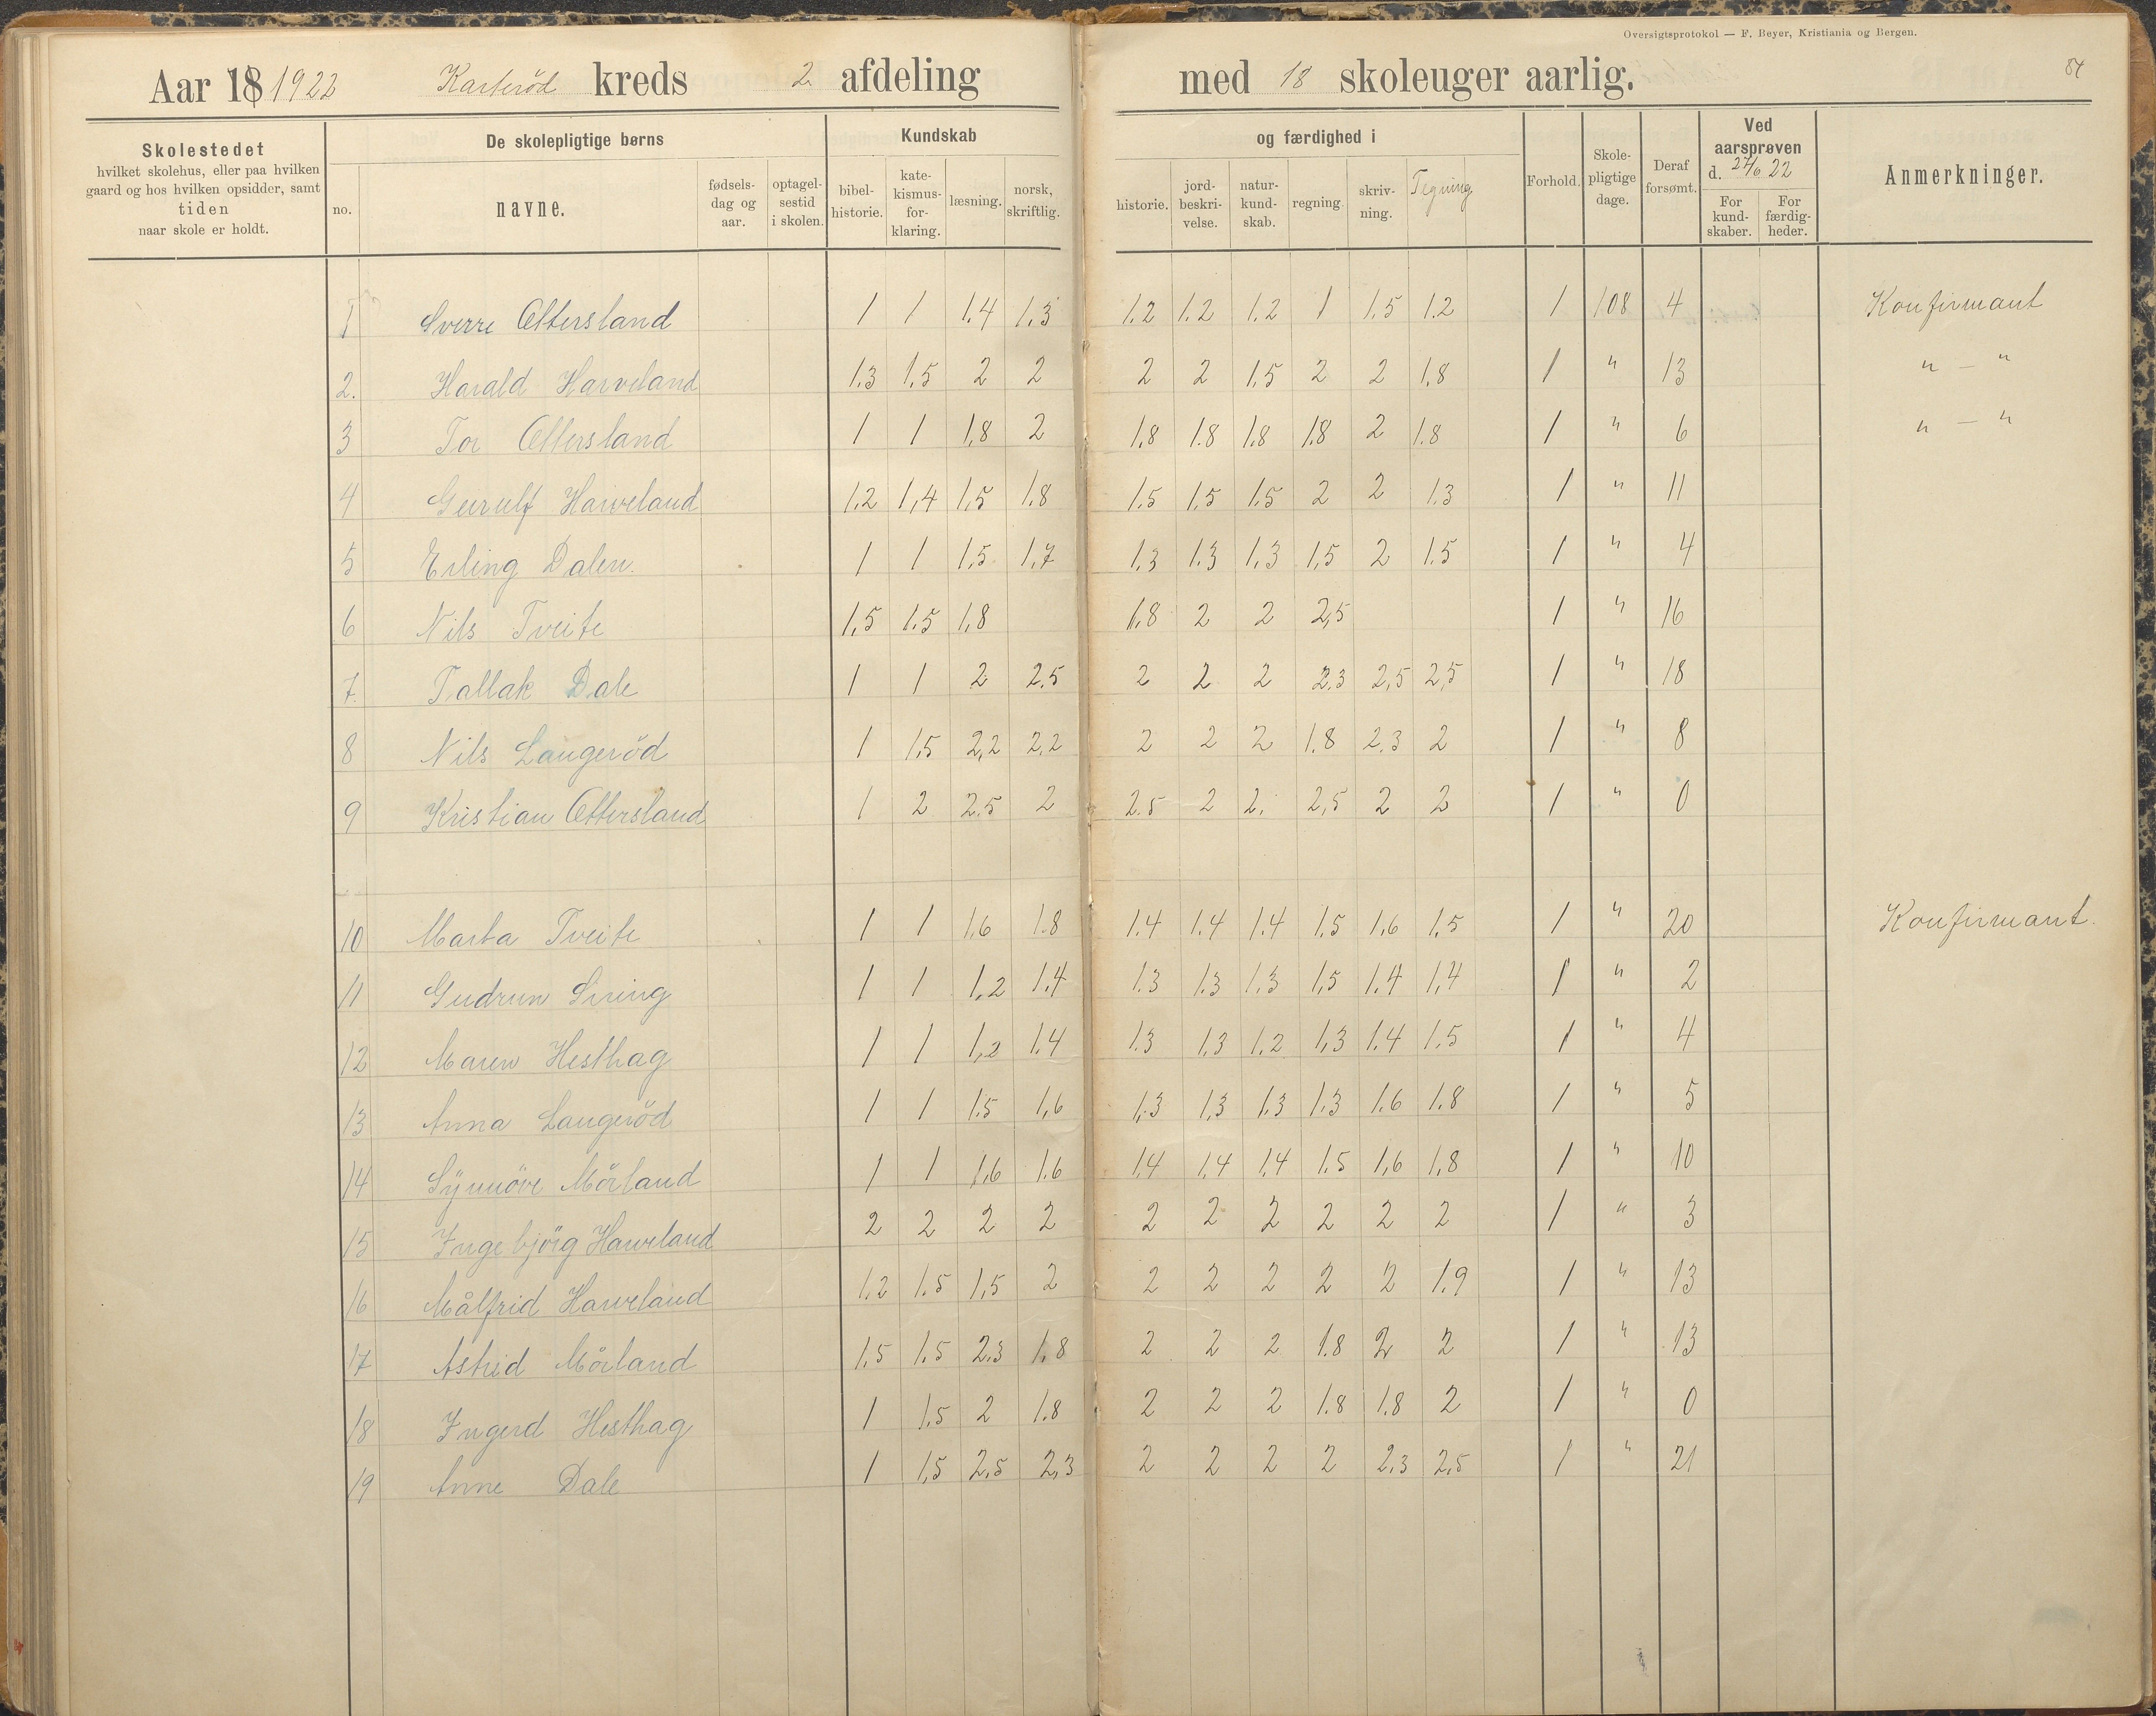 Oversigtsprotokol — F. Beyer, Kristiania og Bergen.
84
Aar 18 1922 Karterød kreds 2 afdeling med 18 skoleuger aarlig.
Skolestedet
hvilket skolehus, eller paa hvilken
gaard og hos hvilken opsidder, samt
tiden
naar skole er holdt.
De skolepligtige børns
no. navne. fødsels-dag og aar. optagel-sestid i skolen.
Kundskab og færdighed i
bibel-historie. kate-kismus-for-klaring. læsning. norsk, skriftlig. historie. jord-beskri-velse. natur-kund-skab. regning. skriv-ning. Tegning
Forhold. Skole-pligtige dage. Deraf forsømt.
Ved aarsprøven d. 24/6 22
For kund-skaber. For færdig-heder.
Anmerkninger.
1 Sverre Ettersland 1 1 1.4 1.3 1.2 1.2 1.2 1 1.5 1.2 1 108 4 Konfirmant
2. Harald Harveland 1.3 1,5 2 2 2 2 1.5 2 2 1.8 1 " 13 " — "
3 Tor Ettersland 1 1 1,8 2 1.8 1.8 1.8 1.8 2 1.8 1 " 6 " — "
4 Geirulf Harveland 1.2 1,4 1,5 1.8 1.5 1.5 1.5 2 2 1.3 1 " 11
5 Erling Dalen. 1 1 1.5 1.7 1.3 1.3 1.3 1,5 2 1.5 1 " 4
6 Nils Tveite 1,5 1.5 1,8 1.8 2 2 2,5 1 " 16
7. Tallak Dale 1 1 2 2.5 2 2 2 2.3 2,5 2,5 1 " 18
8 Nils Langerød 1 1,5 2,2 2,2 2 2 2 1.8 2.3 2 1 " 8
9 Kristian Ettersland 1 2 2.5 2 2.5 2 2. 2,5 2 2 1 " 0
10 Marta Tveite 1 1 1.6 1.8 1.4 1.4 1.4 1.5 1,6 1,5 1 " 20 Konfirmant.
11 Gudrun Sining 1 1 1,2 1.4 1.3 1.3 1.3 1,5 1.4 1,4 1 " 2
12 Maren Hesthag 1 1 1,2 1.4 1.3 1.3 1.2 1,3 1.4 1.5 1 " 4
13 Anna Langerød 1 1 1.5 1,6 1,3 1,3 1.3 1.3 1.6 1.8 1 " 5
14 Synnöve Mörland 1 1 1,6 1.6 1.4 1,4 1,4 1.5 1,6 1,8 1 " 10
15 Ingebjörg Harveland 2 2 2 2 2 2 2 2 2 2 1 " 3
16 Målfrid Harveland 1,2 1.5 1,5 2 2 2 2 2 2 1.9 1 " 13
17 Astrid Mörland 1,5 1.5 2.3 1.8 2 2 2 1.8 2 2 1 " 13
18 Ingerd Hesthag 1 1.5 2 1.8 2 2 2 1.8 1.8 2 1 " 0
19 Anne Dale 1 1,5 2,5 2,3 2 2 2 2 2.3 2.5 1 " 21